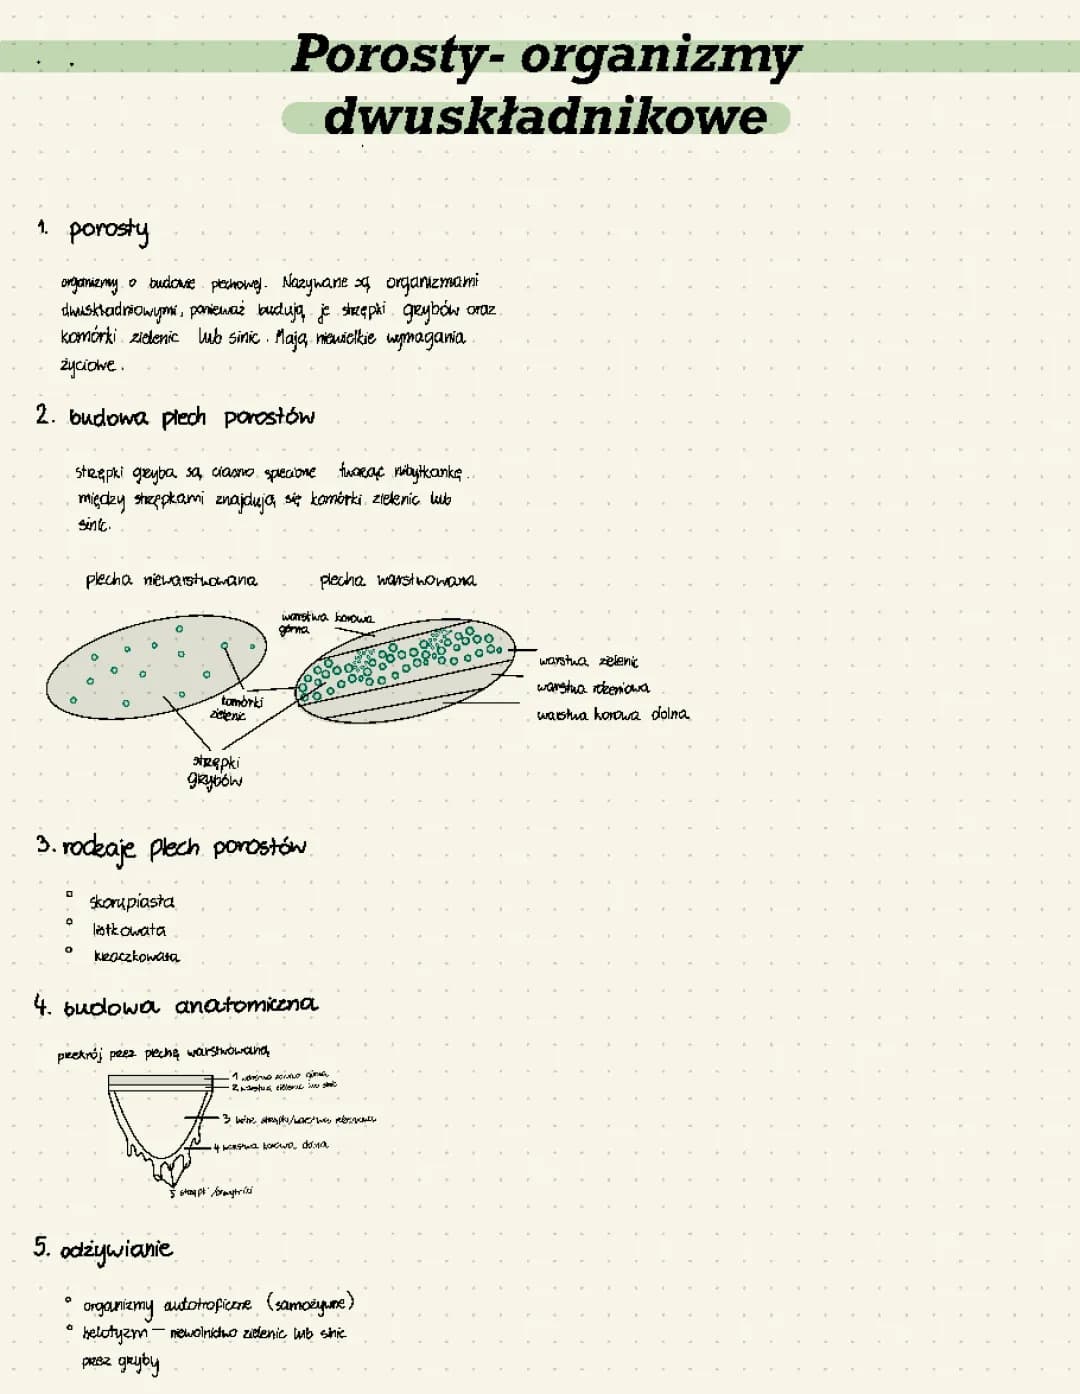 Porosty- organizmy
dwuskładnikowe
1. porosty
organizmy o budowie plechowej. Nazywane są organizmami
dwuskładniowymi, ponieważ budują je strzępki grzybów oraz
komórki zielenic lub sinic. Mają niewielkie wymagania
życiowe.
2. budowa plech porostów
strzępki grzyba są ciasno splecione tworząc nibytkankę.
między strzępkami znajdują się komórki zielenic lub
sinic.
plecha niewarstwowana plecha warstwowana
warstwa korowa
górna
warstwa zielenic
warstwa rdzeniowa
warstwa korowa dolna
komórki
zielenic
strzępki
grzybów
3. rodzaje plech porostów
skorupiasta
listkowata
krzaczkowata
4. budowa anatomiczna
przekrój przez plechę warstwowaną
1 warstwa korowa górna
2 warstwa zielenic lub sinic
3 luźne strzępki/warstwa rdzeniowa
4 warstwa korowa dolna
5 strzępki/chwytniki
5. odżywianie
organizmy autotroficzne (samożywne)
helotyzm — niewolnictwo zielenic lub sinic
przez grzyby